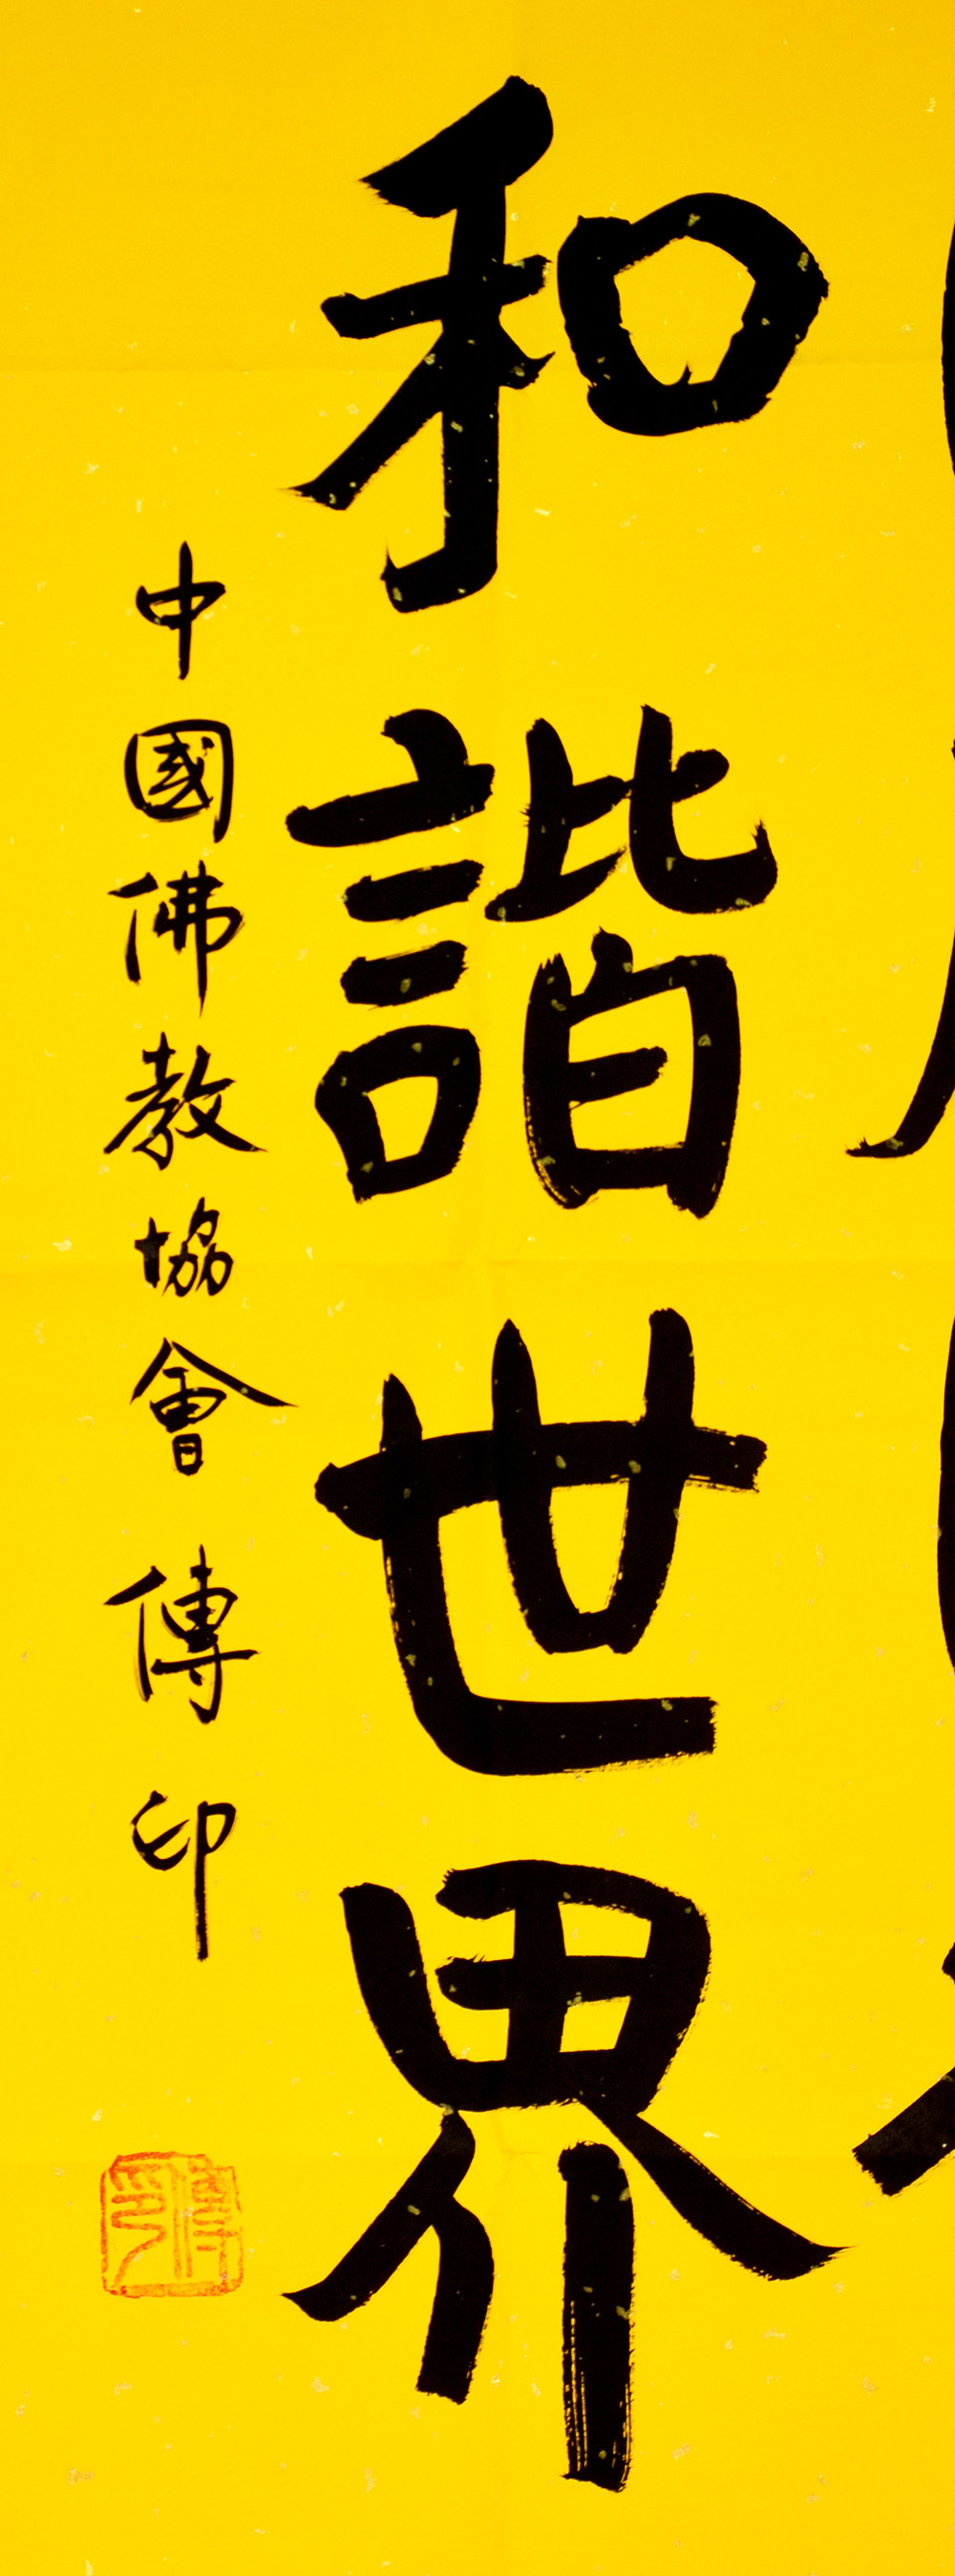 和諧世界
中國佛教協會 傳印
傳印